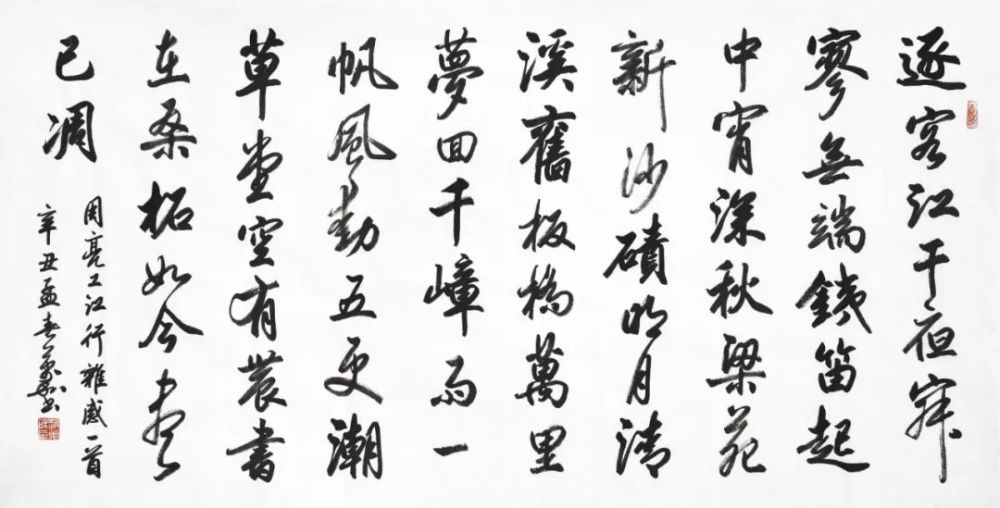 逐客江干夜寂
寥無端銕笛起
中宵深秋梁苑
新沙磧明月清
溪舊板橋萬里
夢回千嶂雨一
帆風動五更潮
草堂空有農書
在桑柘如今盡
已凋
周亮工江行雜感一首
辛丑孟春書